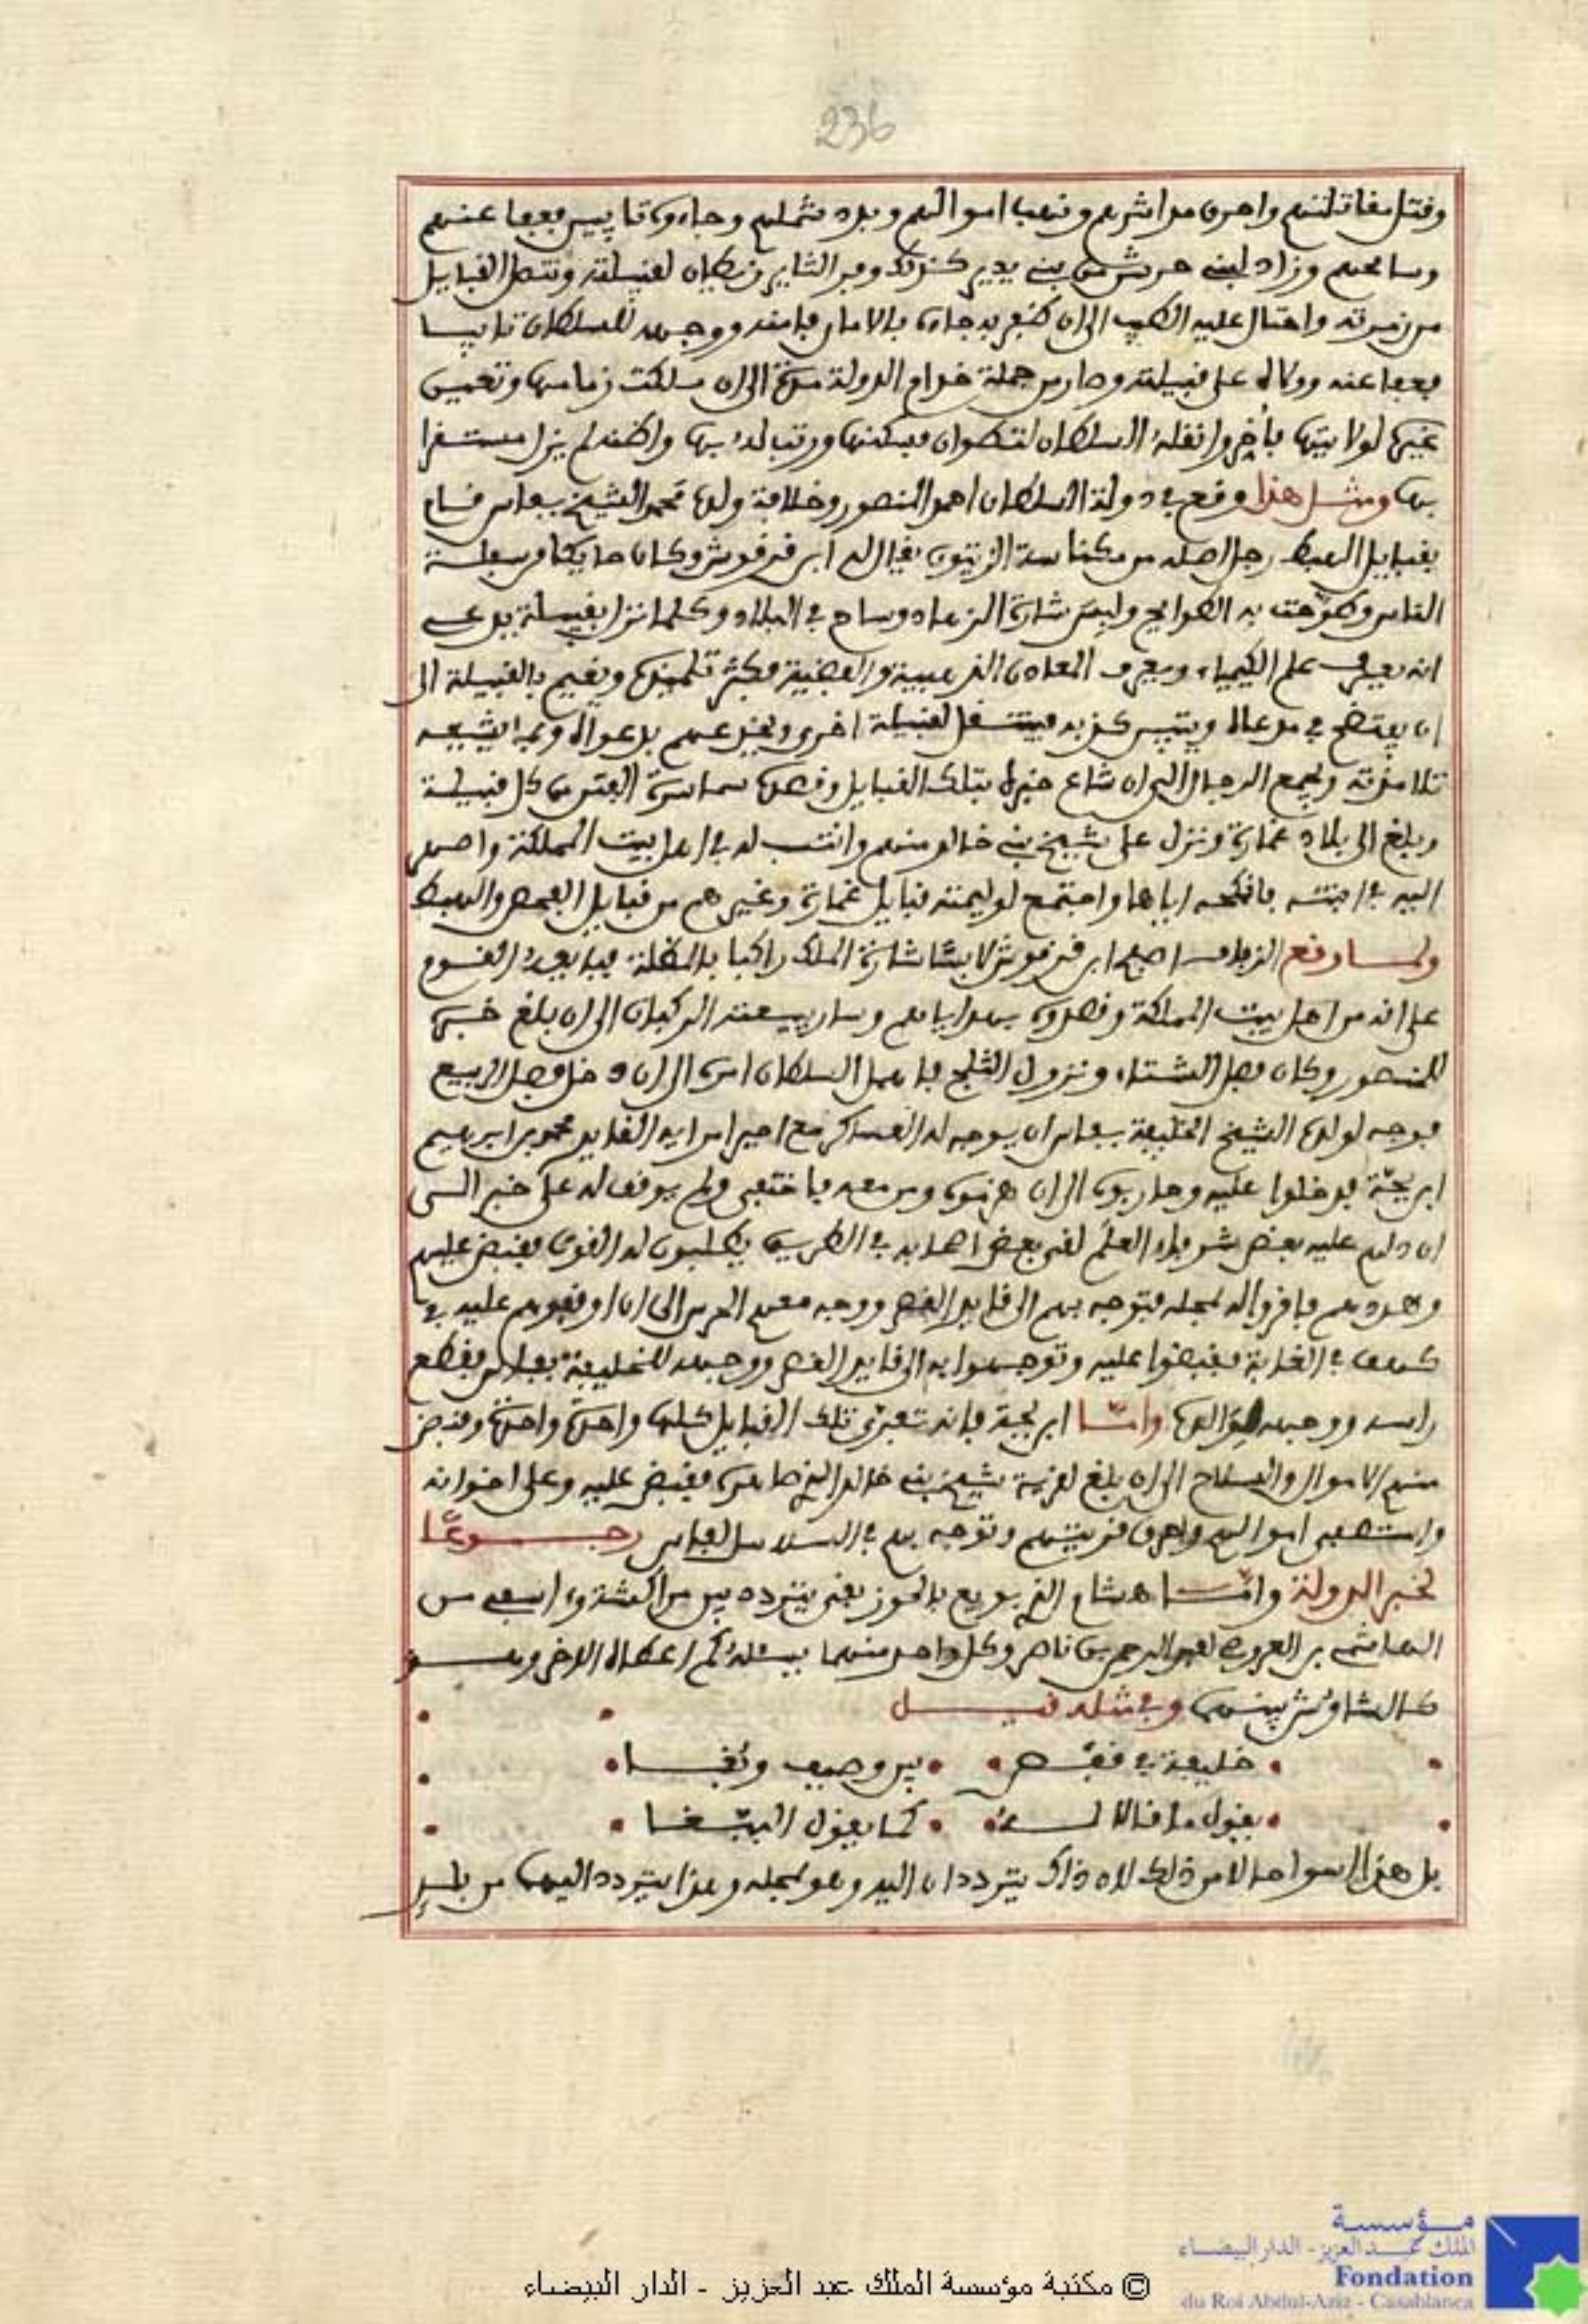 236
وقتل مقاتلتهم واحرق مداشرهم ونهب اموالهم وبدد شملهم وجاءوه تايبين فعفا عنهم
وسامحهم وزاد لبنى حرشن بنى يدير كذلك وفر الثاير زيطان لقبيلته وتنصل القبايل
من زمرته واحتال عليه الطيب الى ان ظفر به جاءه بالامان فامنه ووجهه للسلطان تايبا
فعفا عنه وولاه على قبيلته وصار من جملة خدام الدولة مدة الى ان سلكت زمامها وتعين
غيره لولايتها فأخر وانقله السلطان لتطوان فسكنها ورتب له بها ولاكنه لم يزل مستقرا
بها ومثل هذا وقع في دولة السلطان احمد المنصور وخلافة ولده محمد الشيخ بفاس قام
بقبايل الهبط رجل اصله من مكناسة الزيتون يقال له ابن قرقوش وكان حايكا من سفلة
الناس وطوحت به الطوايح ولبس شارة الزهاد وساح في البلاد وكلما نزل بقبيلة يدعى
انه يعرف علم الكيمياء ويعرف المعادن الذهبية والفضية فكثر تلميذه ويقيم بالقبيلة الى
ان يفتضح في مدعاه ويتبين كذبه فينتقل لقبيلة اخرى ويخبرهم بدعواه وبما يشيعه
تلامذته ويجمع الدجال الى ان شاع خبره بتلك القبايل وقصده سماسرة الفتن من كل قبيلة
وبلغ الى بلاد غمارة ونزل على شيخ بنى خالد منهم وانتسب له في اهل بيت المملكة واصهر
اليه في ابنته فانكحه اياها واجتمع لوليمته قبايل غمارة وغيرهم من قبايل الفحص والهبط
ولما وقع الزفاف اصبح ابن قرقوش لابسا شارة الملك راكبا بالمظلة فبايعه القوم
على انه من اهل بيت المملكة وقصدوه بهداياهم وسار بيعته الركبان الى ان بلغ خبره
للمنصور وكان فصل الشتاء ونزول الثلج فاهمل السلطان امره الى ان دخل فصل الربيع
فوجه لولده الشيخ الخليفة بفاس ان يوجه له العساكر مع امير امرايه القايد محمد بن ابراهيم
ابن بجة فدخلوا عليه وحاربوه الى ان هزموه ومن معه فاختفى ولم يوقف له على خبر الى
ان دلهم عليه بعض شرفاء العلم لقى بعض اصحابه في الطريق يطلبون له القوت فقبض عليهم
وهددهم فاقروا له بمحله فتوجه بهم الى قايد القصر ووجه معهم الحرس الى ان اوقفوهم عليه في
كهف في الغابة فقبضوا عليه وتوجهوا به الى قايد القصر ووجهه للخليفة بفاس فقطع
راسه ووجهه لوالده واما ابن بجة فانه تتبع تلك القبايل كلها واحدة واحدة وقبض
منهم الاموال والسلاح الى ان بلغ لقرية شيخ بنى خالد الذي صاهره فقبض عليه وعلى اخوانه
واستصفى اموالهم واحرق قريتهم وتوجه بهم في السلاسل لفاس رجوعا
لخبر الدولة واما هشام الذي بويع بالحوز بقى يتردد بين مراكش واسفى من
الهاشمى بن العروسى لعبد الرحمن بن ناصر وكل واحد منهما يسئله كم اعطاه الاخر وهو
كالشاوش بينهما وفي مثله قيل
خليفة في قفص بين وصيف وبغا
يقول ما قالا له كما يقول الببغا
بل هذا اسوا حالا من ذلك لان ذاك يترددان اليه وهو بمحله وهذا يتردد اليهما من بلد
مؤسسة
الملك عبد العزيز - الدار البيضاء
Fondation
du Roi Abdul-Aziz - Casablanca
© مكتبة مؤسسة الملك عبد العزيز - الدار البيضاء